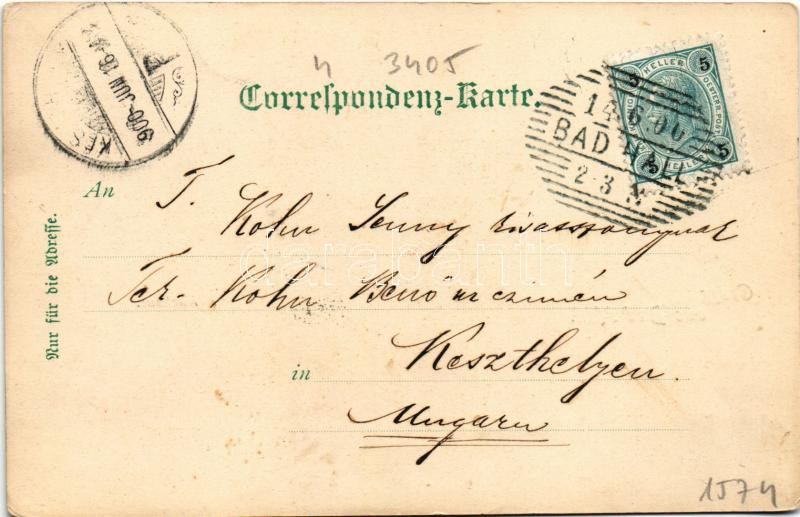 4 3405
Correspondenz-Karte.
5 HELLER 5
OESTERR. POST
5 HELLER 5
14.6.00
BAD HALL
2-3
900-JUN 16
KES
Nur für die Adresse.
An
T.
Kohn Jenny kisasszonynak
darabanth
Tek. Kohn Benő úr czimén
in Keszthelyen.
Ungarn
1574